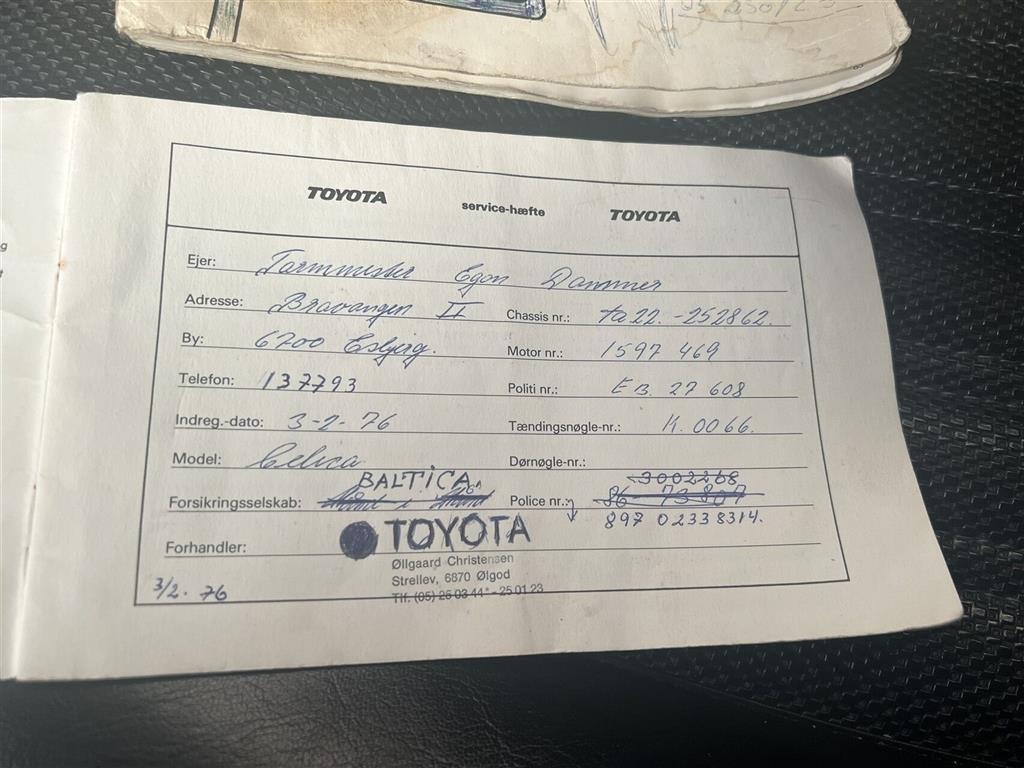 TOYOTA service-hæfte TOYOTA
Ejer: Egon Dammer
Adresse: Bravangen II Chassis nr.: ta 22.-252862.
By: 6700 Esbjerg. Motor nr.: 1597 469
Telefon: 137793 Politi nr.: EB. 27 608
Indreg.-dato: 3-2-76 Tændingsnøgle-nr.: K.0066.
Model: Celica Dørnøgle-nr.:
BALTICA 3002268
Forsikringsselskab: Police nr.: 86-73807
897 02338314.
Forhandler: TOYOTA
Øllgaard Christensen
Strellev, 6870 Ølgod
3/2. 76 Tlf. (05) 26 03 44 - 25 01 23